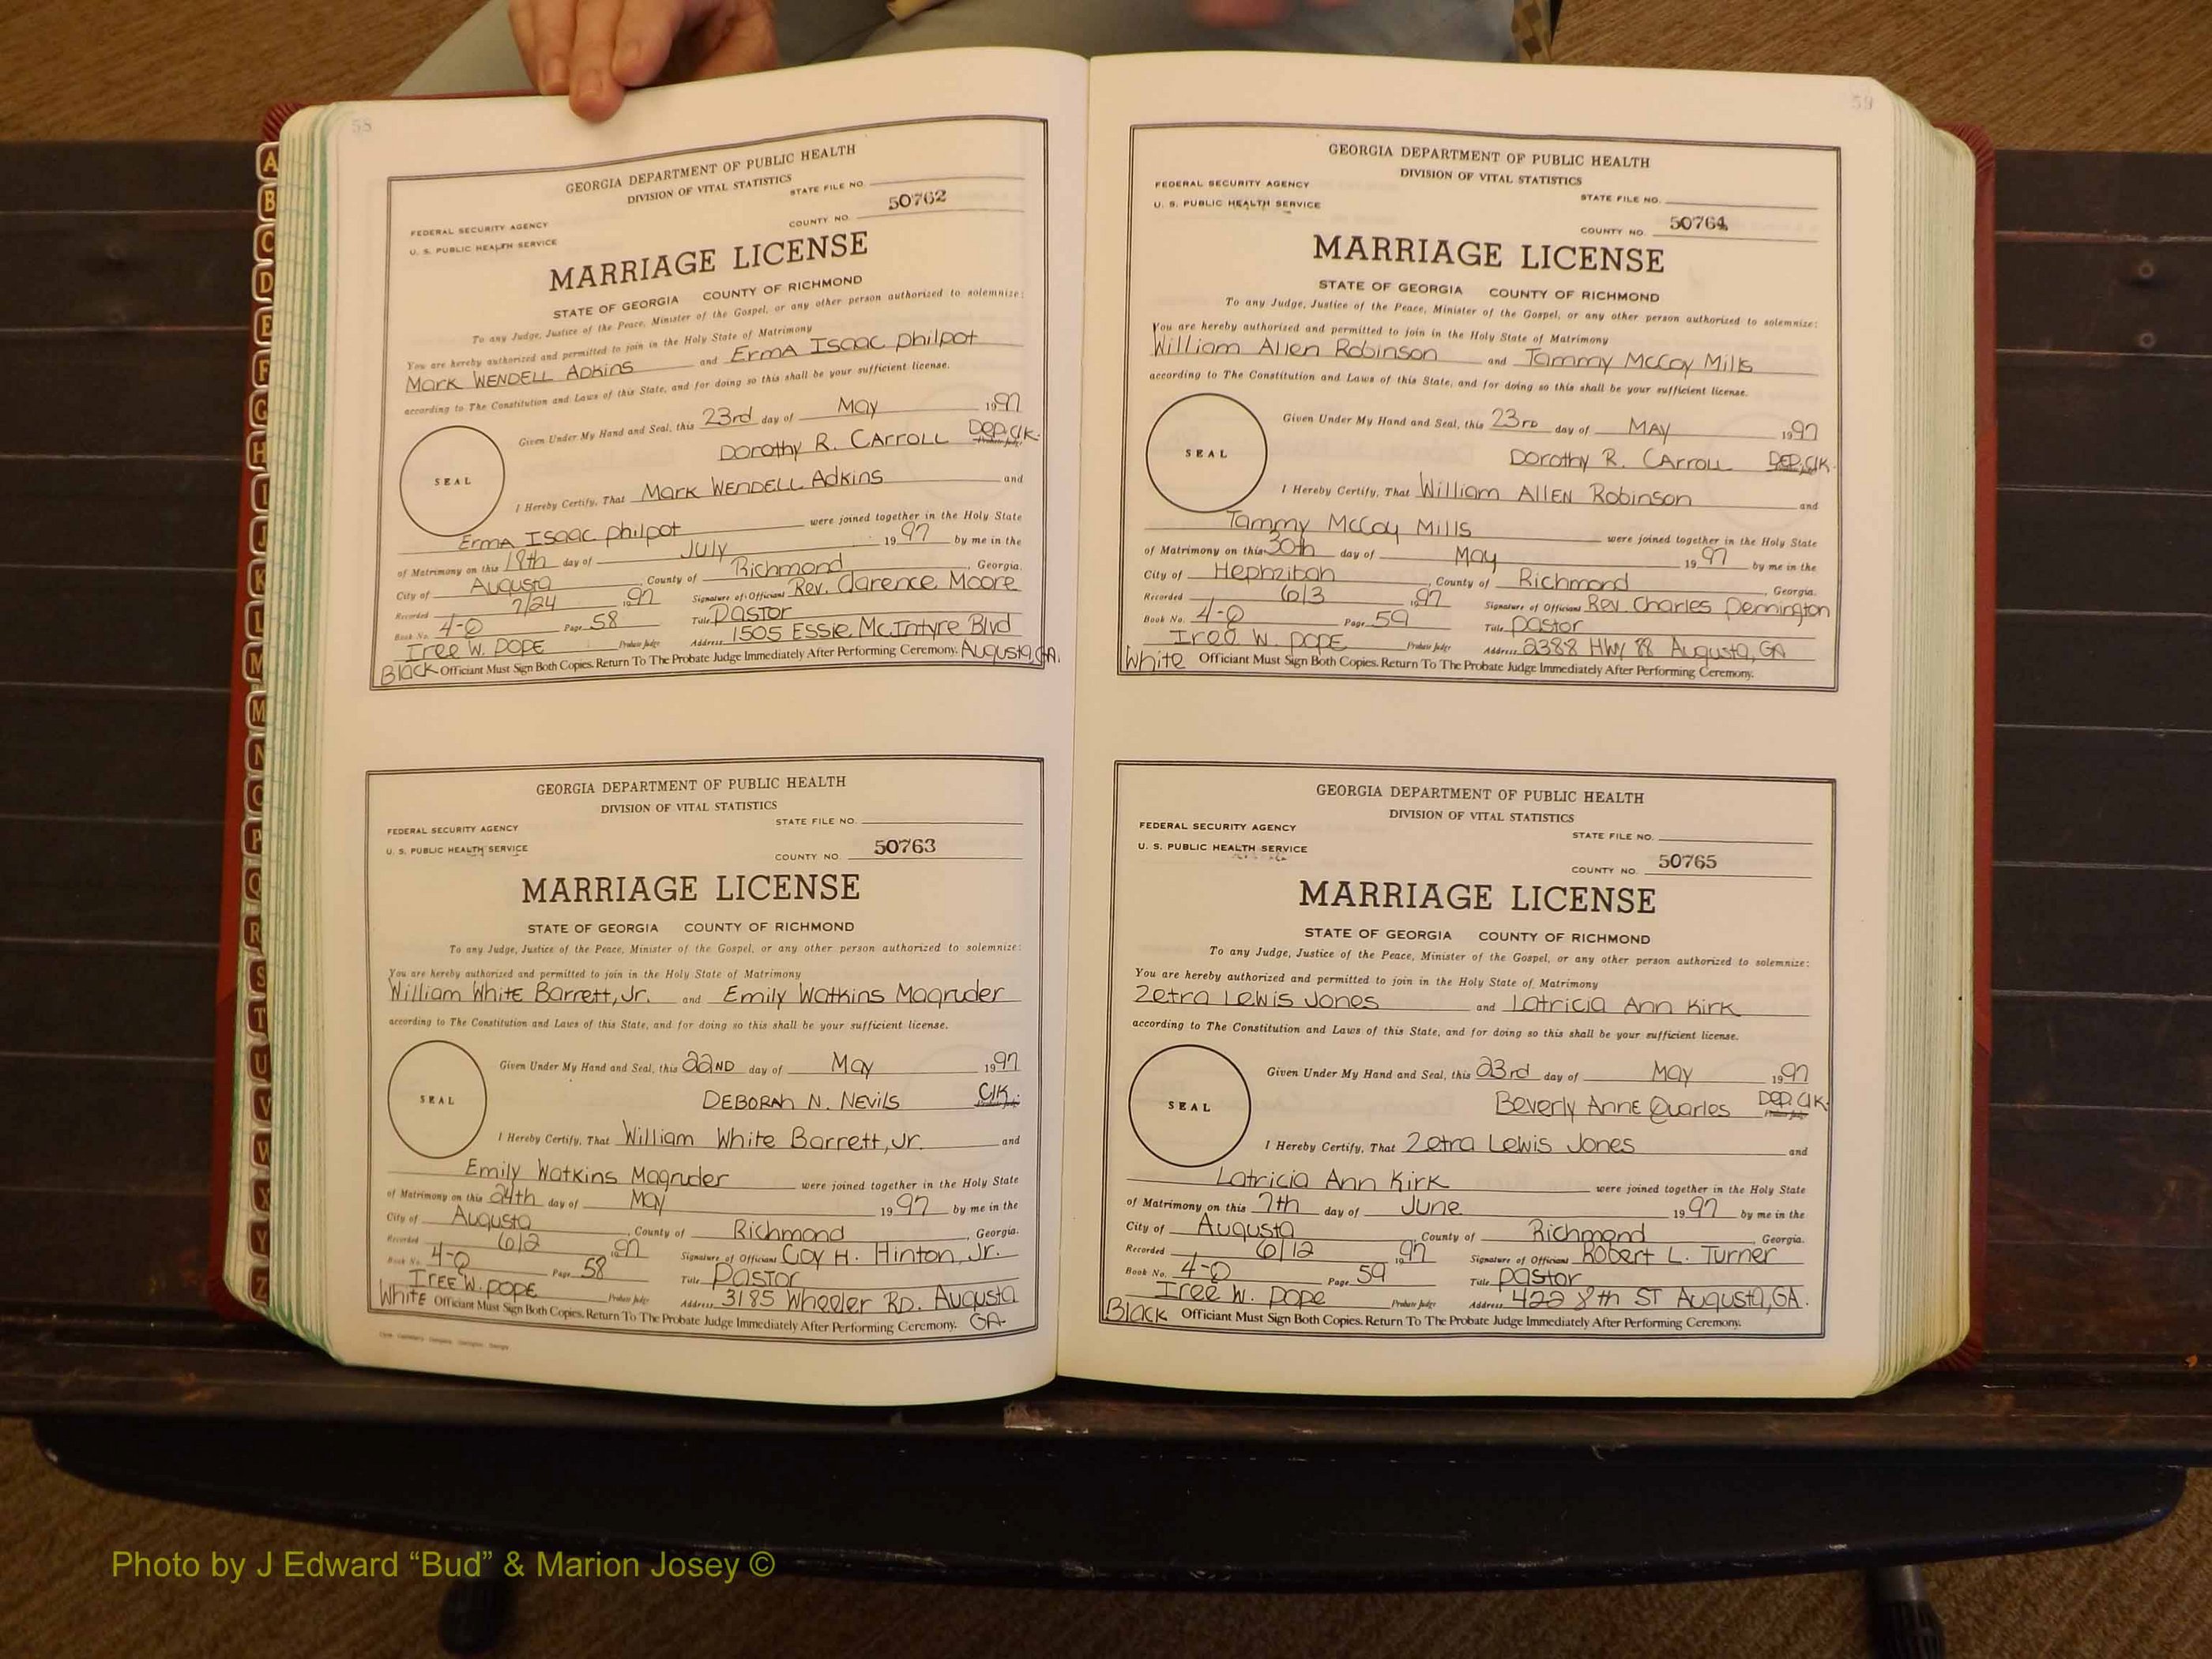 58
GEORGIA DEPARTMENT OF PUBLIC HEALTH
DIVISION OF VITAL STATISTICS
STATE FILE NO.
FEDERAL SECURITY AGENCY
COUNTY NO. 50762
U. S. PUBLIC HEALTH SERVICE
MARRIAGE LICENSE
STATE OF GEORGIA COUNTY OF RICHMOND
To any Judge, Justice of the Peace, Minister of the Gospel, or any other person authorized to solemnize:
You are hereby authorized and permitted to join in the Holy State of Matrimony
Mark WENDELL Adkins and Erma Isaac Philpot
according to The Constitution and Laws of this State, and for doing so this shall be your sufficient license.
Given Under My Hand and Seal, this 23rd day of May 1997
Dorothy R. Carroll Dep. Clk.
SEAL
I Hereby Certify, That Mark WENDELL Adkins and
Erma Isaac Philpot were joined together in the Holy State
of Matrimony on this 18th day of July 1997 by me in the
City of Augusta, County of Richmond, Georgia.
Recorded 7/24 1997 Signature of Official Rev. Clarence Moore
Book No. 4-Q Page 58 Title Pastor
Iree W. Pope Probate Judge Address 1505 Essie McIntyre Blvd
Black Officiant Must Sign Both Copies. Return To The Probate Judge Immediately After Performing Ceremony. Augusta, GA.
GEORGIA DEPARTMENT OF PUBLIC HEALTH
DIVISION OF VITAL STATISTICS
STATE FILE NO.
FEDERAL SECURITY AGENCY
U. S. PUBLIC HEALTH SERVICE
COUNTY NO. 50763
MARRIAGE LICENSE
STATE OF GEORGIA COUNTY OF RICHMOND
To any Judge, Justice of the Peace, Minister of the Gospel, or any other person authorized to solemnize:
You are hereby authorized and permitted to join in the Holy State of Matrimony
William White Barrett, Jr. and Emily Watkins Magruder
according to The Constitution and Laws of this State, and for doing so this shall be your sufficient license.
Given Under My Hand and Seal, this 22ND day of May 1997
DEBORAH N. NEVILS Clk.
SEAL
I Hereby Certify, That William White Barrett, Jr. and
Emily Watkins Magruder were joined together in the Holy State
of Matrimony on this 24th day of May 1997 by me in the
City of Augusta, County of Richmond, Georgia.
Recorded 6/2 1997 Signature of Official Coy H. Hinton, Jr.
Book No. 4-Q Page 58 Title Pastor
Iree W. Pope Probate Judge Address 3185 Wheeler RD. Augusta
White Officiant Must Sign Both Copies. Return To The Probate Judge Immediately After Performing Ceremony. GA.
59
GEORGIA DEPARTMENT OF PUBLIC HEALTH
DIVISION OF VITAL STATISTICS
FEDERAL SECURITY AGENCY
STATE FILE NO.
U. S. PUBLIC HEALTH SERVICE
COUNTY NO. 50764
MARRIAGE LICENSE
STATE OF GEORGIA COUNTY OF RICHMOND
To any Judge, Justice of the Peace, Minister of the Gospel, or any other person authorized to solemnize:
You are hereby authorized and permitted to join in the Holy State of Matrimony
William Allen Robinson and Tammy McCoy Mills
according to The Constitution and Laws of this State, and for doing so this shall be your sufficient license.
Given Under My Hand and Seal, this 23rd day of May 1997
Dorothy R. Carroll DEP. Clk.
SEAL
I Hereby Certify, That William Allen Robinson and
Tammy McCoy Mills were joined together in the Holy State
of Matrimony on this 30th day of May 1997 by me in the
City of Hephzibah, County of Richmond, Georgia.
Recorded 6/3 1997 Signature of Official Rev. Charles Dennington
Book No. 4-Q Page 59 Title Pastor
Iree W. Pope Probate Judge Address 2388 Hwy 88 Augusta, GA
White Officiant Must Sign Both Copies. Return To The Probate Judge Immediately After Performing Ceremony.
GEORGIA DEPARTMENT OF PUBLIC HEALTH
DIVISION OF VITAL STATISTICS
FEDERAL SECURITY AGENCY
STATE FILE NO.
U. S. PUBLIC HEALTH SERVICE
COUNTY NO. 50765
MARRIAGE LICENSE
STATE OF GEORGIA COUNTY OF RICHMOND
To any Judge, Justice of the Peace, Minister of the Gospel, or any other person authorized to solemnize:
You are hereby authorized and permitted to join in the Holy State of Matrimony
Zetra Lewis Jones and Latricia Ann Kirk
according to The Constitution and Laws of this State, and for doing so this shall be your sufficient license.
Given Under My Hand and Seal, this 23rd day of May 1997
Beverly Anne Quarles Dep. Clk.
SEAL
I Hereby Certify, That Zetra Lewis Jones and
Latricia Ann Kirk were joined together in the Holy State
of Matrimony on this 7th day of June 1997 by me in the
City of Augusta, County of Richmond, Georgia.
Recorded 6/12 1997 Signature of Official Robert L. Turner
Book No. 4-Q Page 59 Title Pastor
Iree W. Pope Probate Judge Address 422 8th ST Augusta, GA.
Black Officiant Must Sign Both Copies. Return To The Probate Judge Immediately After Performing Ceremony.
A
B
C
D
E
F
G
H
I
J
K
L
M
M
N
O
P
Q
R
S
T
U
V
W
X
Y
Z
Photo by J Edward “Bud” & Marion Josey ©